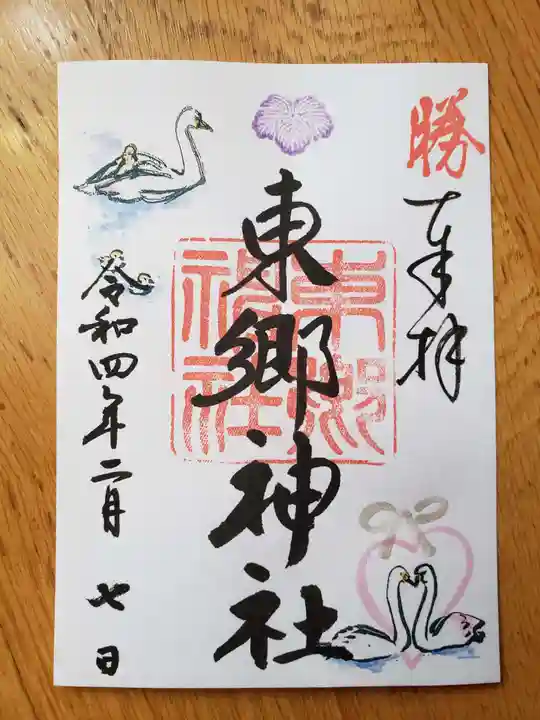 勝
奉拝
東郷神社
東郷神社
令和四年二月七日